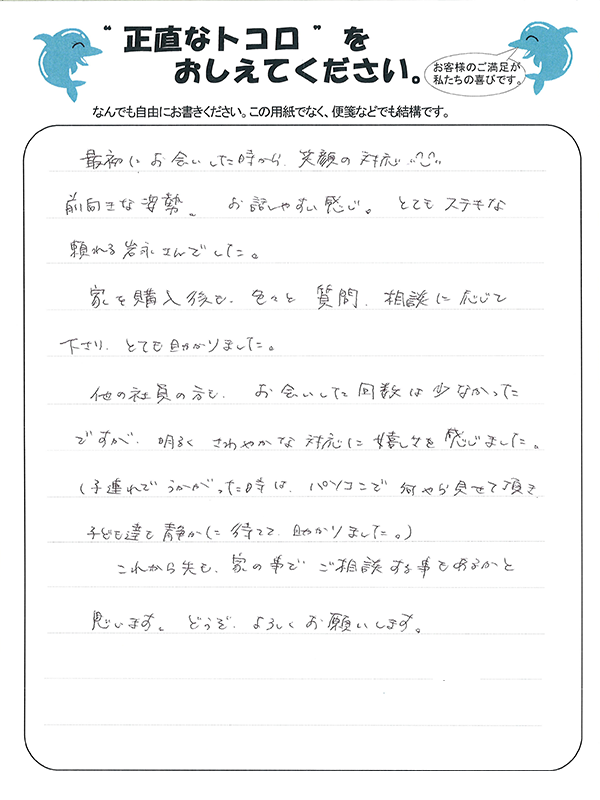 "正直なトコロ"を
おしえてください。
お客様のご満足が
私たちの喜びです。
なんでも自由にお書きください。この用紙でなく、便箋などでも結構です。
最初にお会いした時から、笑顔の対応
前向きな姿勢。 お話しやすい感じ。 とても ステキな
頼れる岩永さんでした。
家を購入後も、色々と 質問、相談に応じて
下さり、とても助かりました。
他の社員の方も、 お会いした回数は少なかった
ですが、明るく さわやかな対応に嬉しさを感じました。
(子連れで うかがった時は、パソコンで 何やら見せて頂き
子ども達も静かに待てて、助かりました。)
これから先も、家の事で ご相談する事もあるかと
思います。どうぞ、よろしくお願いします。